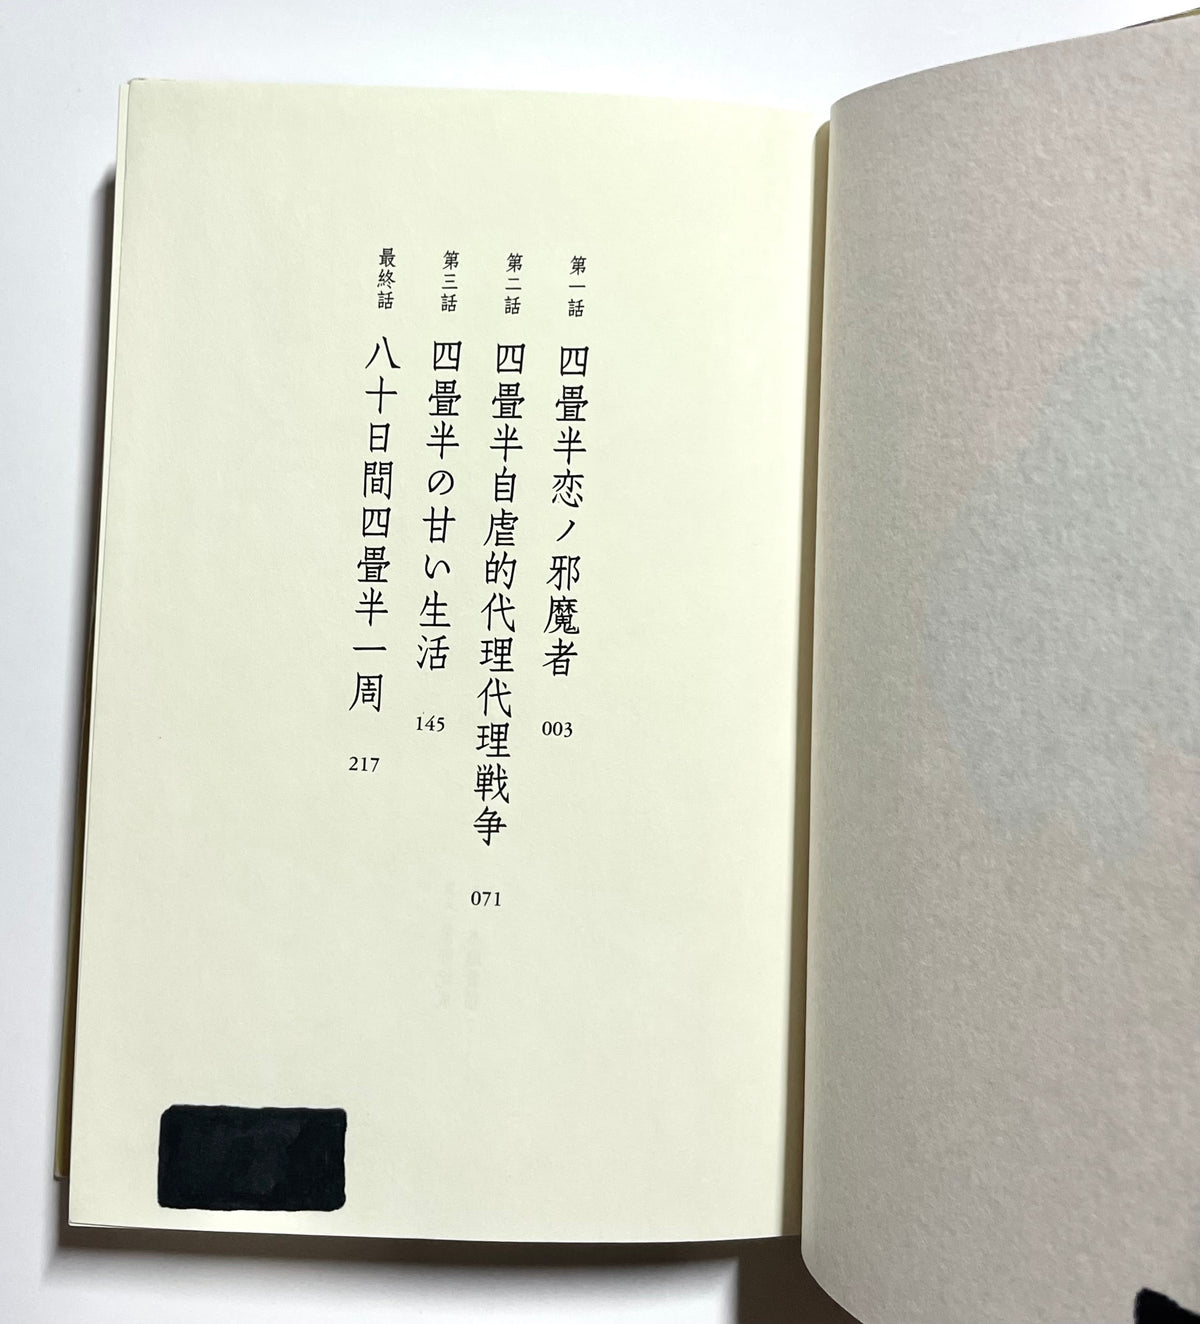 第一話 四畳半恋ノ邪魔者 003
第二話 四畳半自虐的代理代理戦争 071
第三話 四畳半の甘い生活 145
最終話 八十日間四畳半一周 217